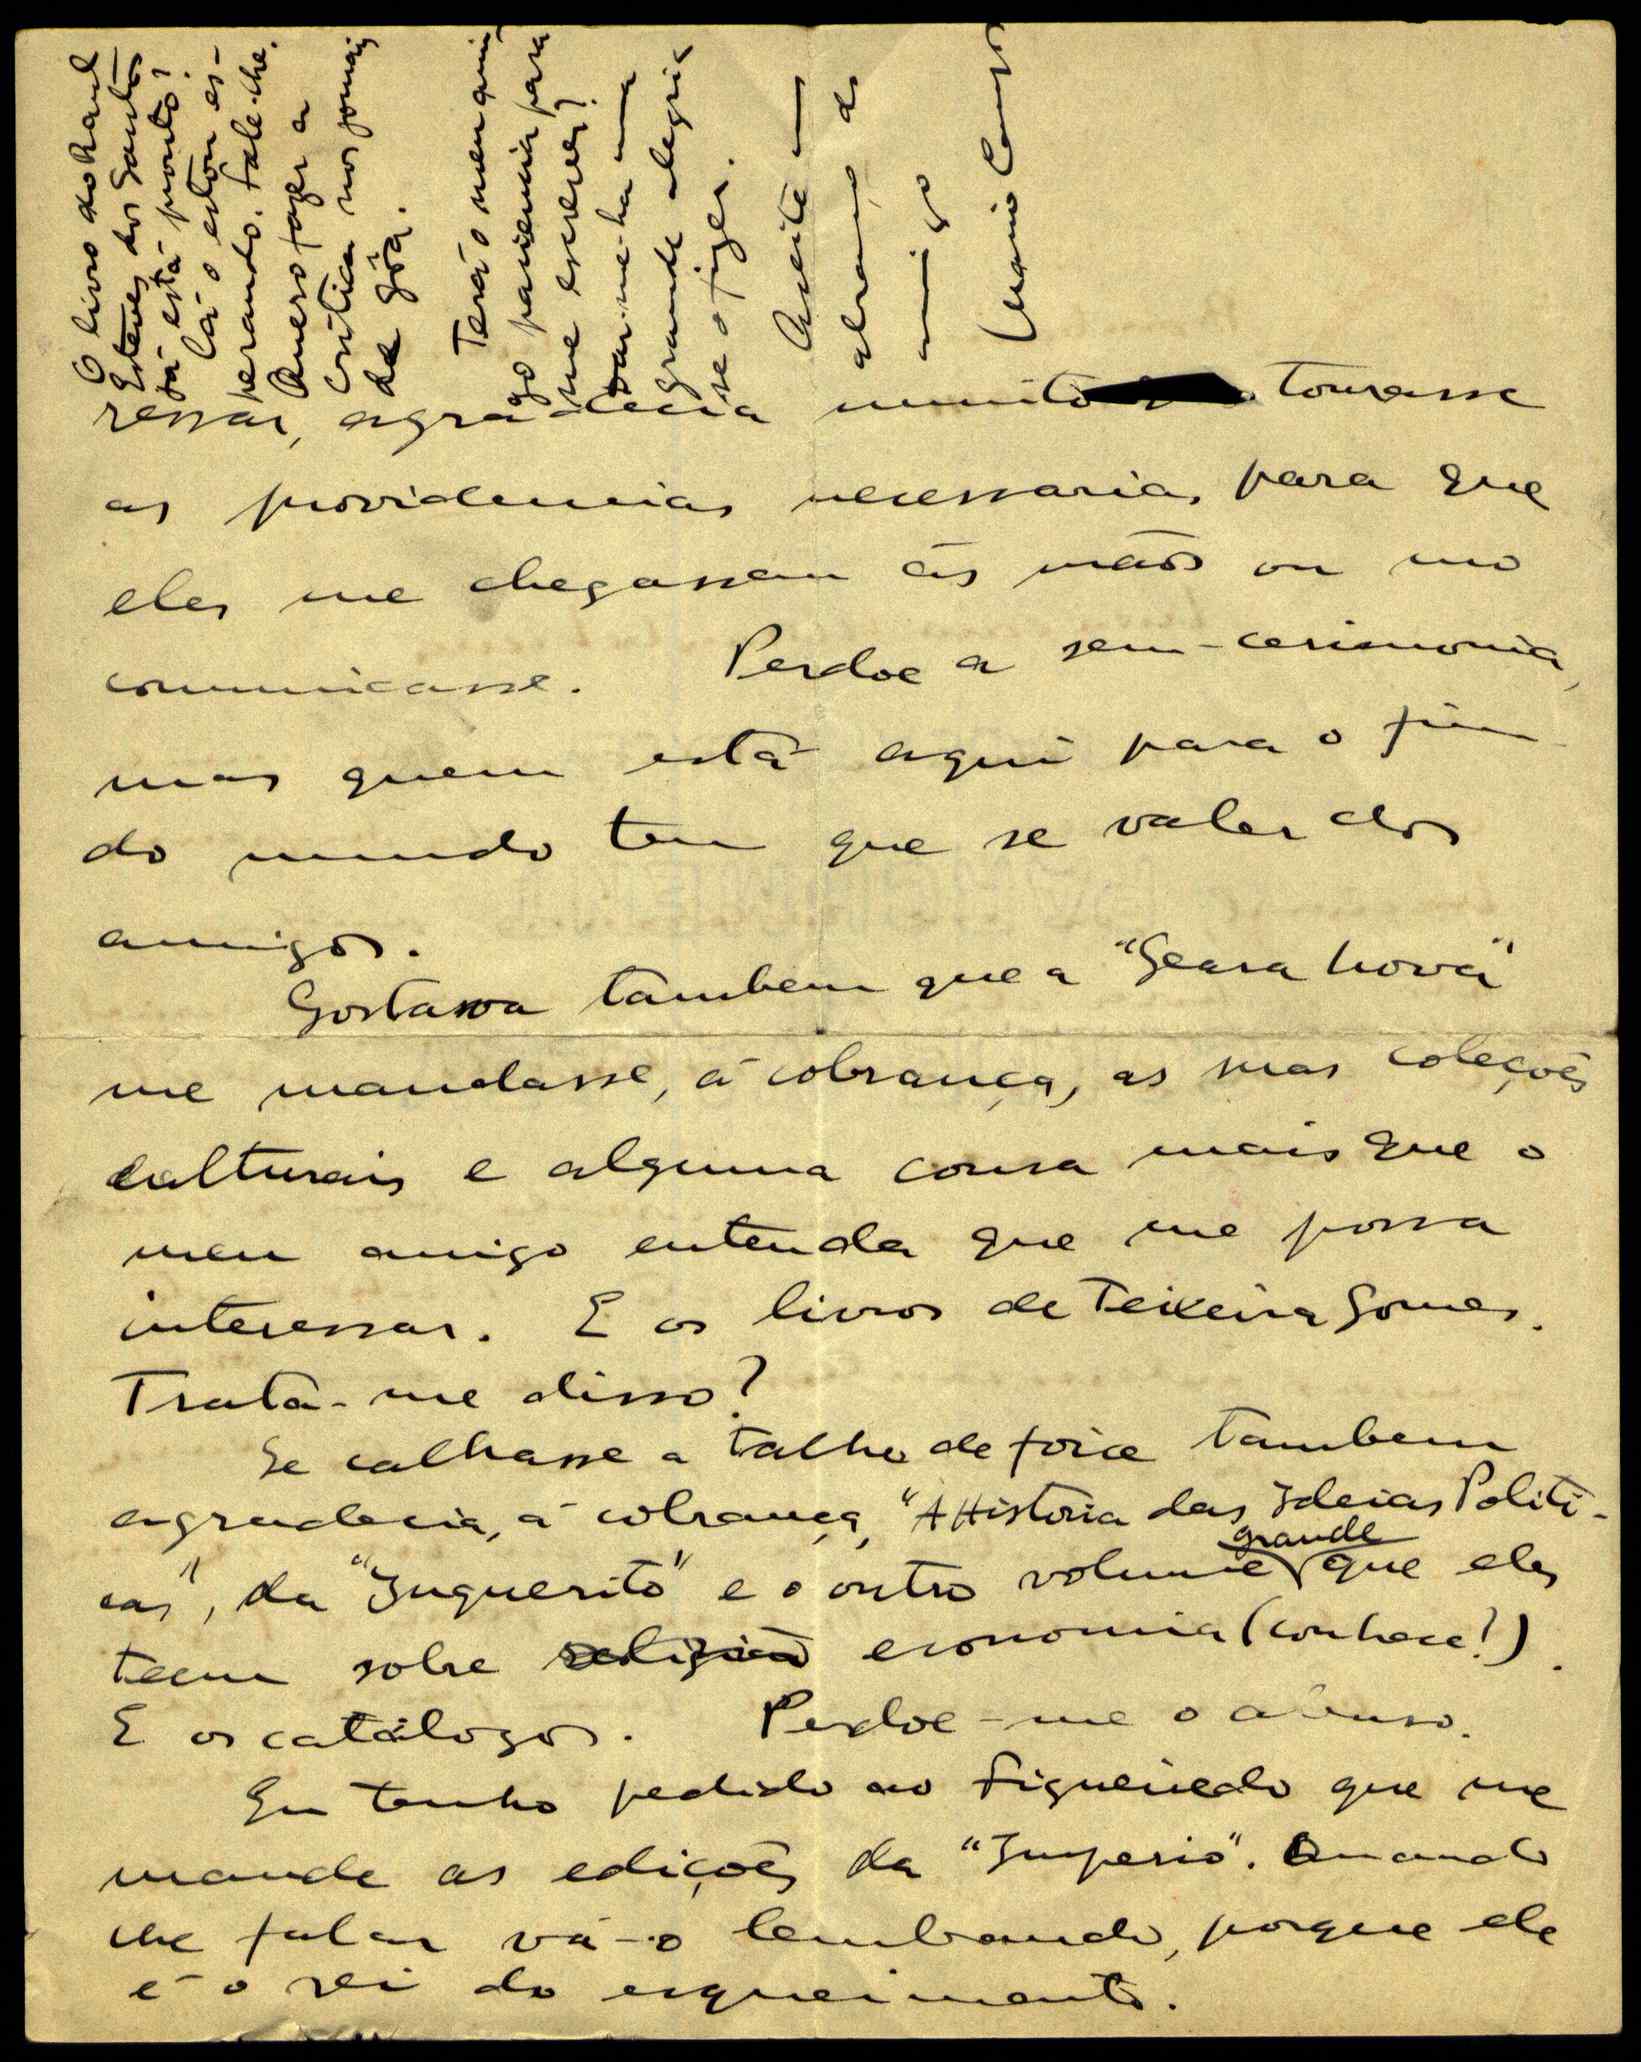 ressar, agradecia muito tomasse
as providencias necessarias para que
eles me chegassem ás mãos ou mo
comunicasse. Perdoe a sem-cerimonia,
mas quem está aqui para o fim
do mundo tem que se valer dos
amigos.
Gostava tambem que a "Seara Nova"
me mandasse, á cobrança, as suas coleções
culturais e alguma cousa mais que o
meu amigo entenda que me possa
interessar. E os livros de Teixeira Gomes.
Trata-me disso?
Se calhasse a talho de foice tambem
agradecia, á cobrança, "A Historia das Ideias Politi-
cas", da "Inquerito" e o outro volume grande que eles
teem sobre economia (conhece?).
E os catálogos. Perdoe-me o abuso.
Eu tenho pedido ao Figueiredo que me
mande as edições da "Imperio". Quando
lhe falar vá-o lembrando, porque ele
é o rei do esquecimento.
O livro do Raul
Esteves dos Santos
já está pronto?
Cá o estou es-
perando. Fale-lhe.
Quero fazer a
critica nos jornais
de Gôa.
Terá o meu ami-
go paciencia para
me escrever?
Dar-me-ha uma
grande alegria
se o fizer.
Aceite um
abraço do
amigo